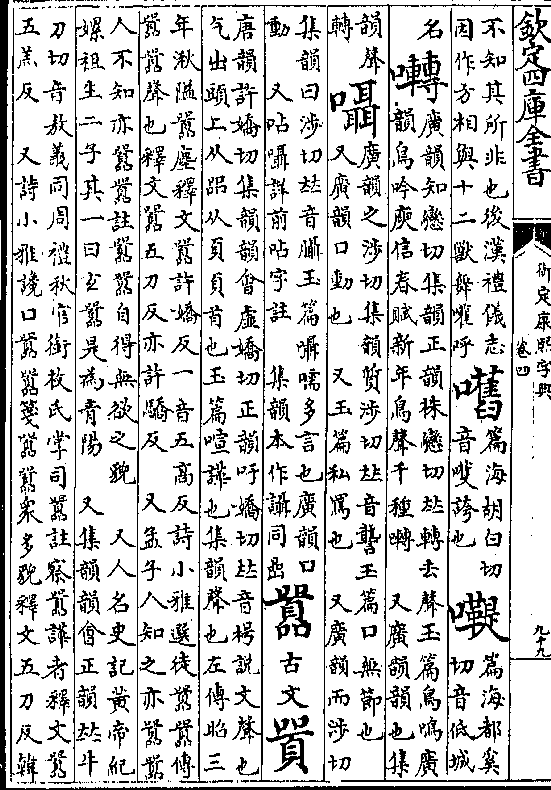 欽定四庫全書
御定康熙字典
卷四
九十九
不知其所非也後漢禮儀志
因作方相與十二獸舞嚾呼
嚿
篇海胡臼切
音雙誇也
篇海都奚
切音低城
名
囀
廣韻知戀切集韻正韻株戀切𠀤轉去聲玉篇鳥鳴廣
韻鳥吟庾信春賦新年鳥聲千種囀 又廣韻韻也集
韻聲
轉
囁
廣韻之涉切集韻質涉切𠀤音讋玉篇口無節也
又廣韻口動也 又玉篇私罵也 又廣韻而涉切
集韻日涉切𠀤音讘玉篇囁嚅多言也廣韻口
動 又呫囁詳前呫字註 集韻本作讘同
囂
古文
唐韻許嬌切集韻韻會虛嬌切正韻吁嬌切𠀤音枵說文聲也
气出頭上从㗊从頁頁首也玉篇喧譁也集韻聲也左傳昭三
年湫隘囂塵釋文囂許嬌反一音五高反詩小雅選徒囂囂傳
囂囂聲也釋文囂五刀反亦許驕反 又孟子人知之亦囂囂
人不知亦囂囂註囂囂自得無欲之貌 又人名史記黃帝紀
嫘祖生二子其一曰玄囂是為青陽 又集韻韻會正韻𠀤牛
刀切音敖義同周禮秋官銜枚氏掌司囂註察囂讙者釋文囂
五羔反 又詩小雅讒口囂囂箋囂囂衆多貌釋文五刀反韓